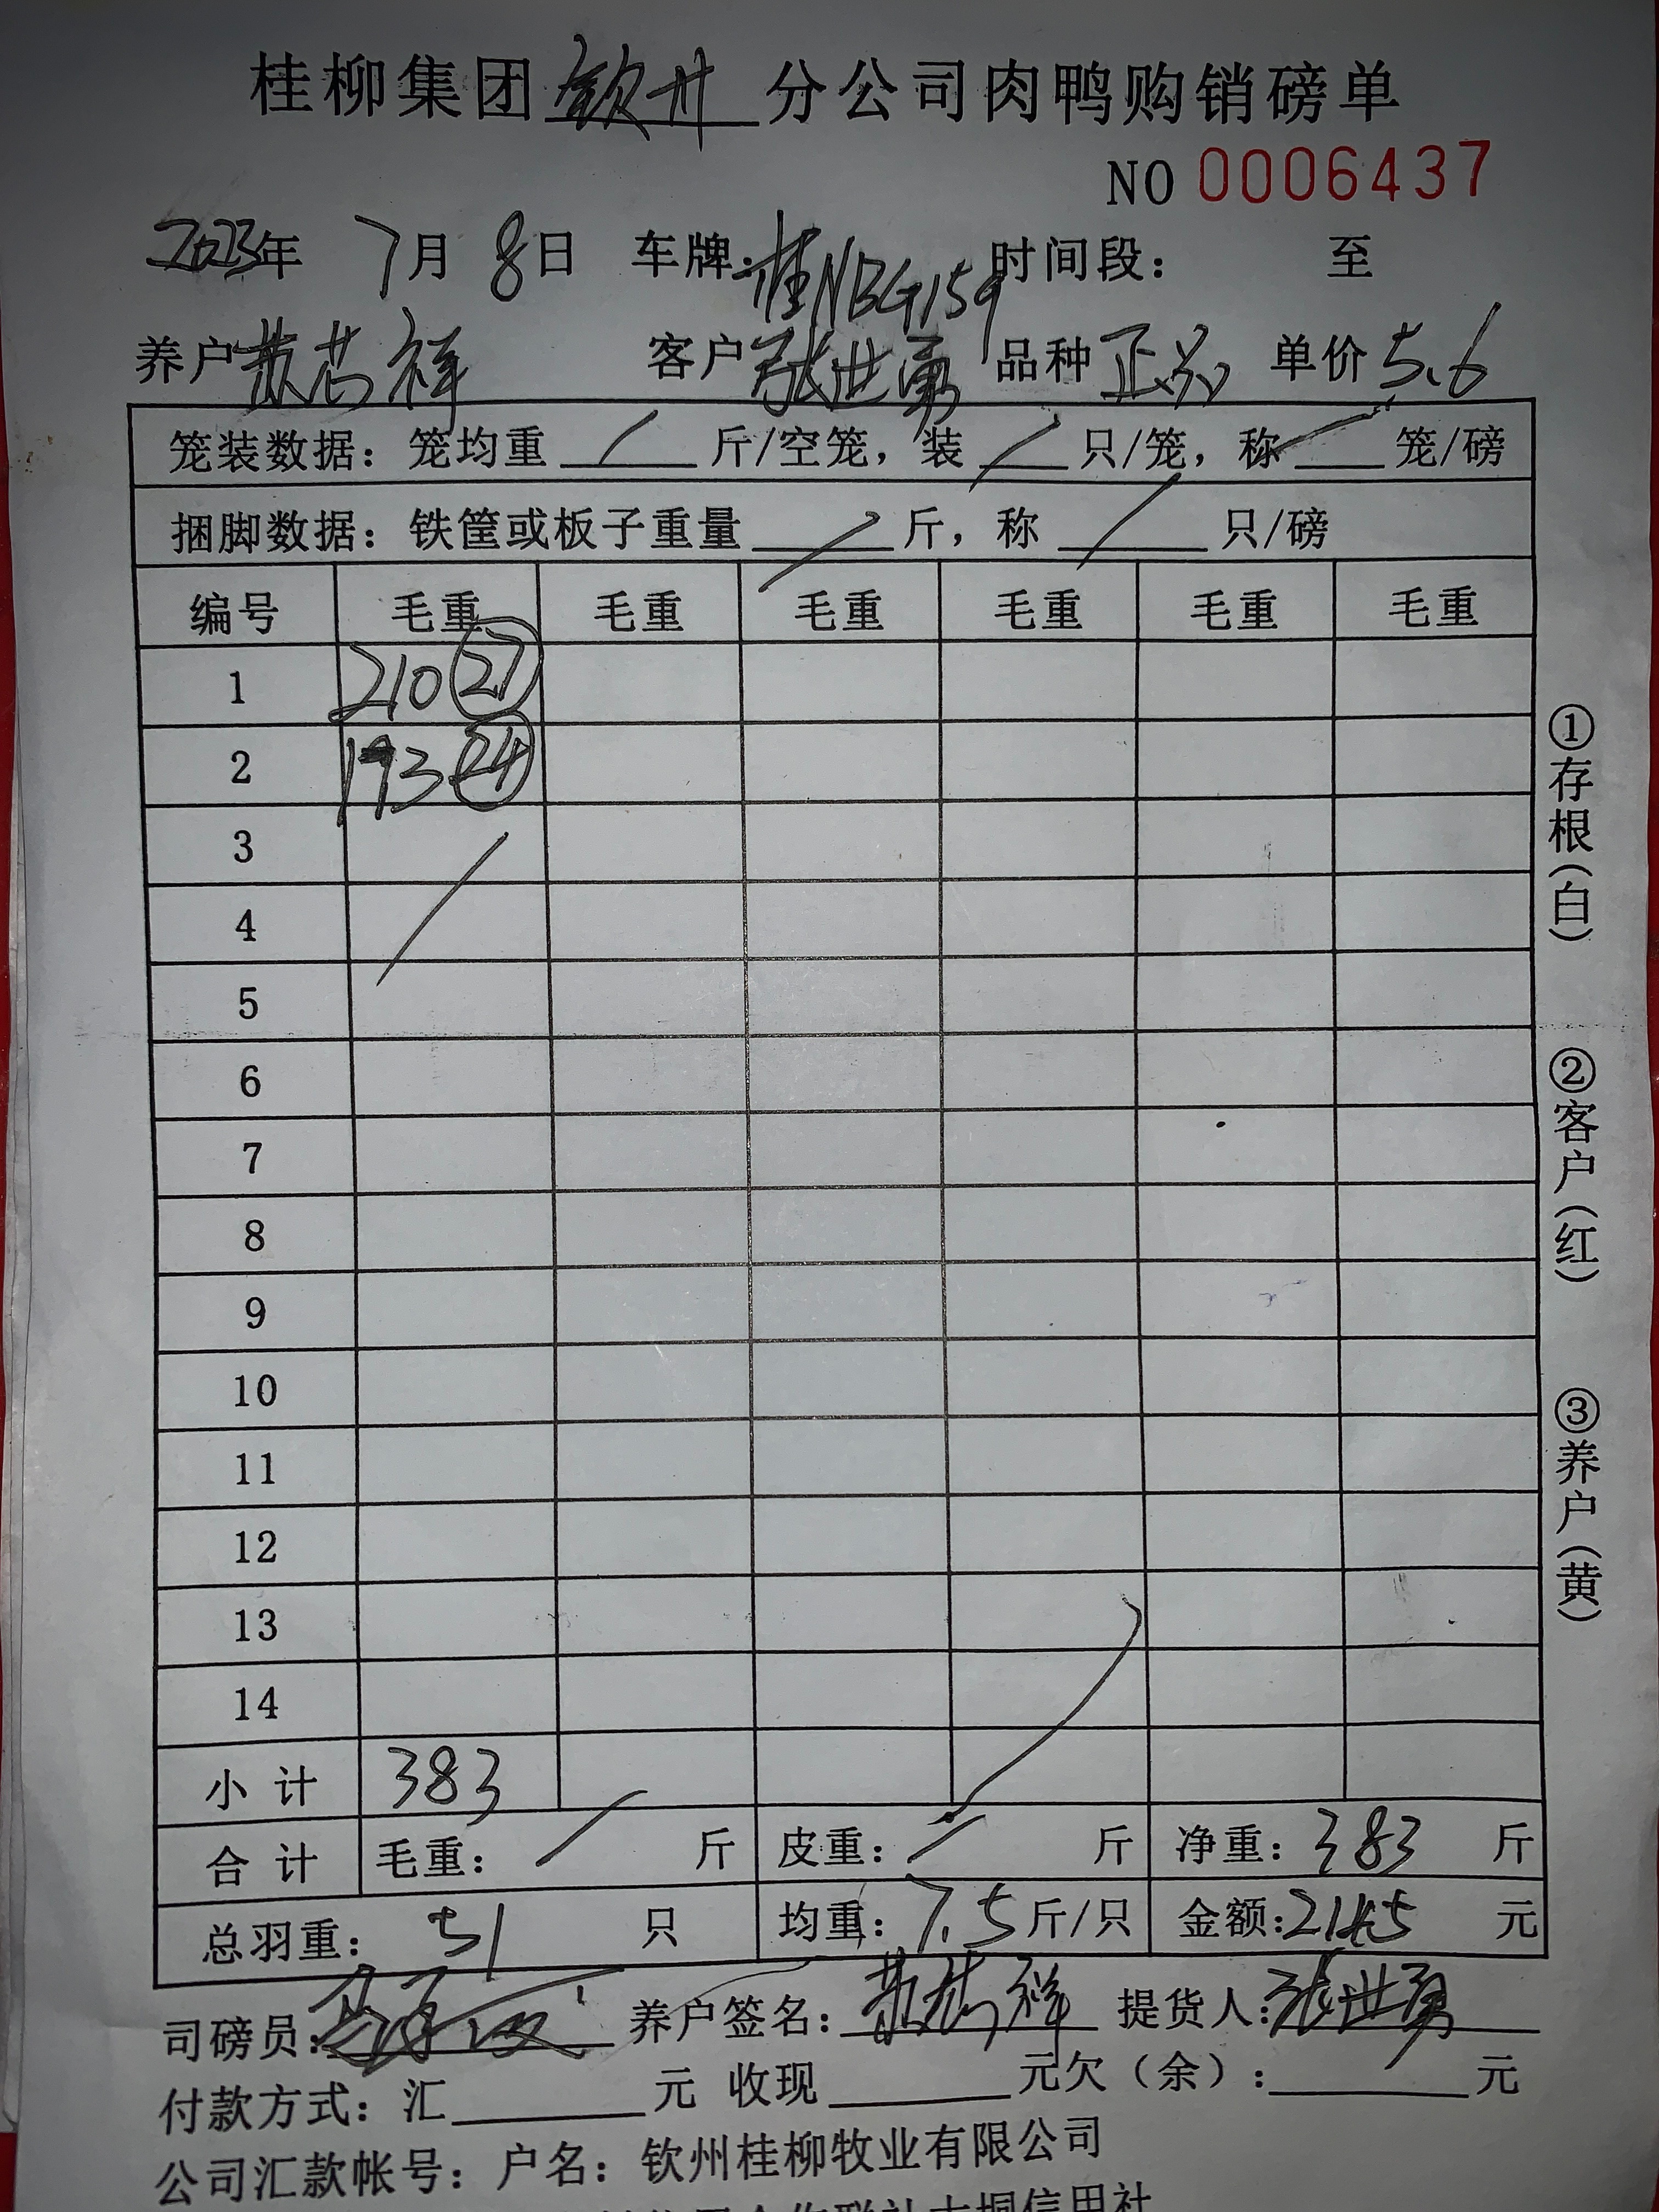 桂柳集团钦州分公司肉鸭购销磅单
NO 0006437
2023年 7月 8日 车牌:桂NBG159 时间段: 至
养户 芯祥 客户 张世勇 品种 正 单价 5.6
笼装数据:笼均重 / 斤/空笼,装 / 只/笼,称 / 笼/磅
捆脚数据:铁筐或板子重量 / 斤,称 / 只/磅
编号 毛重 毛重 毛重 毛重 毛重 毛重
1 210 27
2 193 24
3
4
5
6
7
8
9
10
11
12
13
14
小计 383
合计 毛重: / 斤 皮重: / 斤 净重: 383 斤
总羽重: 51 只 均重: 7.5 斤/只 金额: 2145 元
司磅员: 养户签名: 祥 提货人: 张世勇
付款方式:汇 元 收现 元欠(余): 元
公司汇款帐号:户名:钦州桂柳牧业有限公司
信用社
①存根(白)
②客户(红)
③养户(黄)